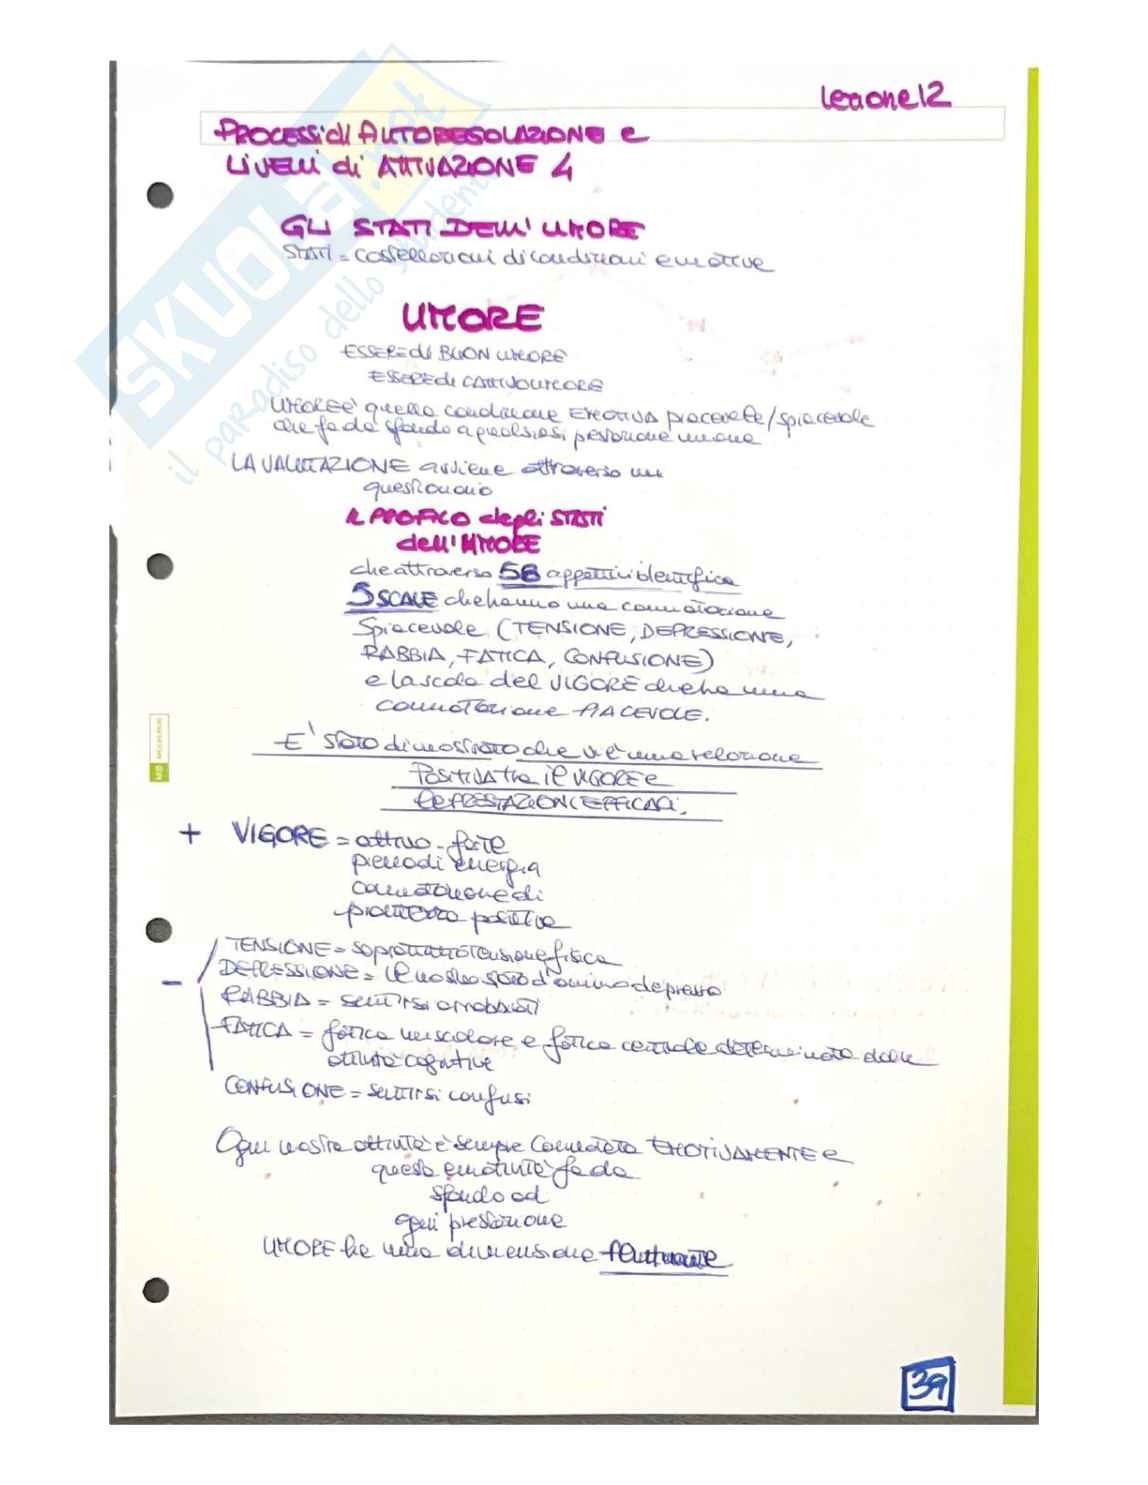 Lezione 12
PROCESSi di AUTOREGOLAZIONE e
LIVELLI di ATTIVAZIONE 4
GLI STATI DELL'UMORE
STATI = costellazioni di condizioni emotive
UMORE
ESSERE di BUON UMORE
ESSERE di CATTIVO UMORE
UMORE è quella condizione EMOTIVA piacevole/spiacevole
che fa da sfondo a qualsiasi prestazione umana
LA VALUTAZIONE avviene attraverso un
questionario
IL PROFILO degli STATI
dell'UMORE
che attraverso 58 aggettivi identifica
5 SCALE che hanno una connotazione
Spiacevole (TENSIONE, DEPRESSIONE,
RABBIA, FATICA, CONFUSIONE)
e la scala del VIGORE che ha una
connotazione PIACEVOLE.
E' stato dimostrato che vi è una relazione
POSITIVA tra il VIGORE e
le PRESTAZIONI EFFICACI.
+ VIGORE = attivo - forte
pieno di energia
connotazione di
prontezza positiva
- TENSIONE = soprattutto tensione fisica
DEPRESSIONE = il nostro stato d'animo depresso
RABBIA = sentirsi arrabbiati
FATICA = fatica muscolare e fatica centrale determinata dalle
attività cognitive
CONFUSIONE = sentirsi confusi
Ogni nostra attività è sempre connotata EMOTIVAMENTE e
questa emotività fa da
sfondo ad
ogni prestazione
UMORE ha una dimensione fluttuante
39
SKUOLA.net
il paradiso dello studente